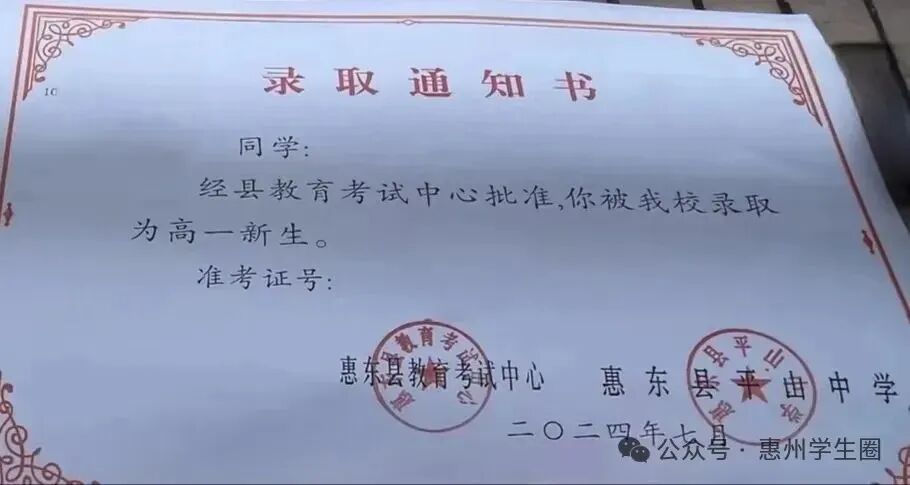 10
录取通知书
同学:
经县教育考试中心批准,你被我校录取
为高一新生。
准考证号:
惠东县教育考试中心 惠东县平山中学
二〇二四年七月
公众号·惠州学生圈